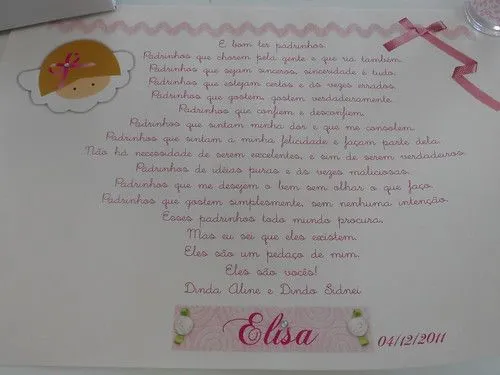 É bom ter padrinhos.
Padrinhos que chorem pela gente e que ria também.
Padrinhos que sejam sinceros, sinceridade é tudo.
Padrinhos que estejam certos e às vezes errados.
Padrinhos que gostem, gostem verdadeiramente.
Padrinhos que confiem e desconfiem.
Padrinhos que sintam minha dor e que me consolem.
Padrinhos que sintam a minha felicidade e façam parte dela.
Não há necessidade de serem excelentes, e sim de serem verdadeiros.
Padrinhos de idéias puras e às vezes maliciosas.
Padrinhos que me desejem o bem sem olhar o que faço.
Padrinhos que gostem simplesmente, sem nenhuma intenção.
Esses padrinhos todo mundo procura,
Mas eu sei que eles existem.
Eles são um pedaço de mim.
Eles são vocês!
Dinda Aline e Dindo Sidnei
Elisa
04/12/2011